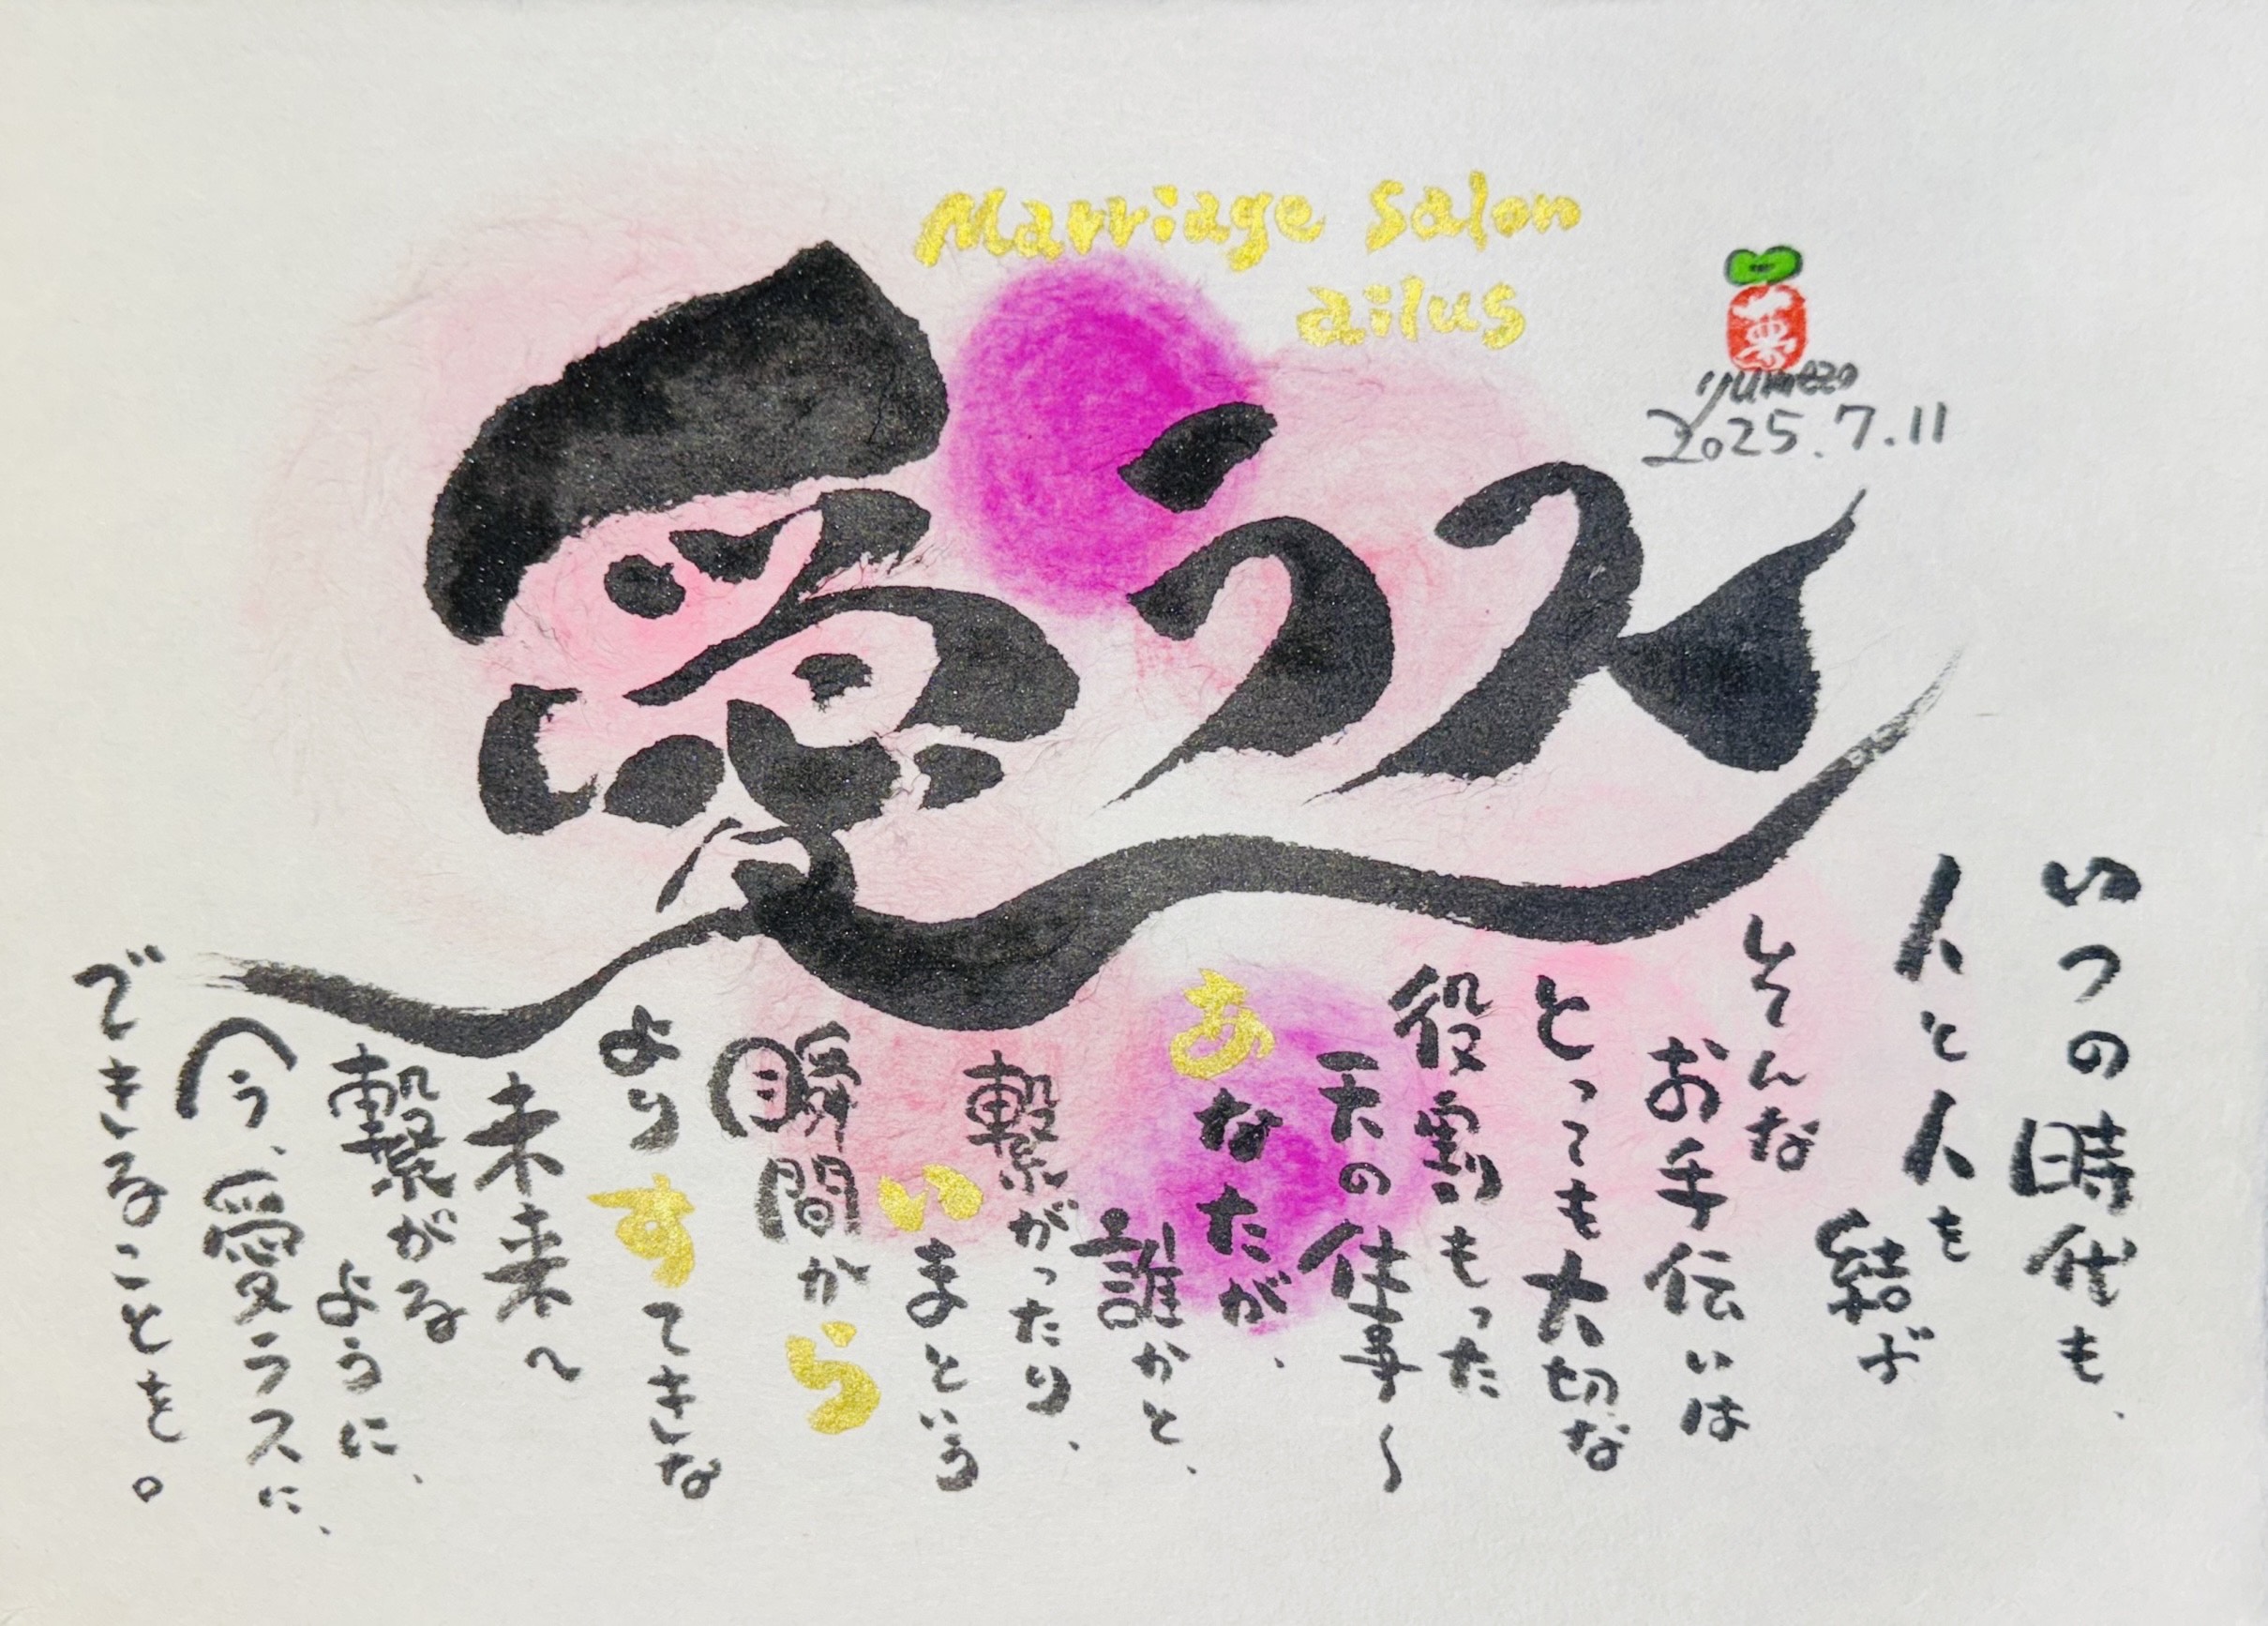 Marriage Salon
ailus
愛ラス
yumezo
2025.7.11
いつの時代も、
人と人を
結ぶ
そんな
お手伝いは
とっても大切な
役割もった
天の仕事〜
あなたが、
誰かと、
繋がったり、
いまという
瞬間から
よりすてきな
未来へ
繋がる
ように、
今、愛ラスに、
できることを。